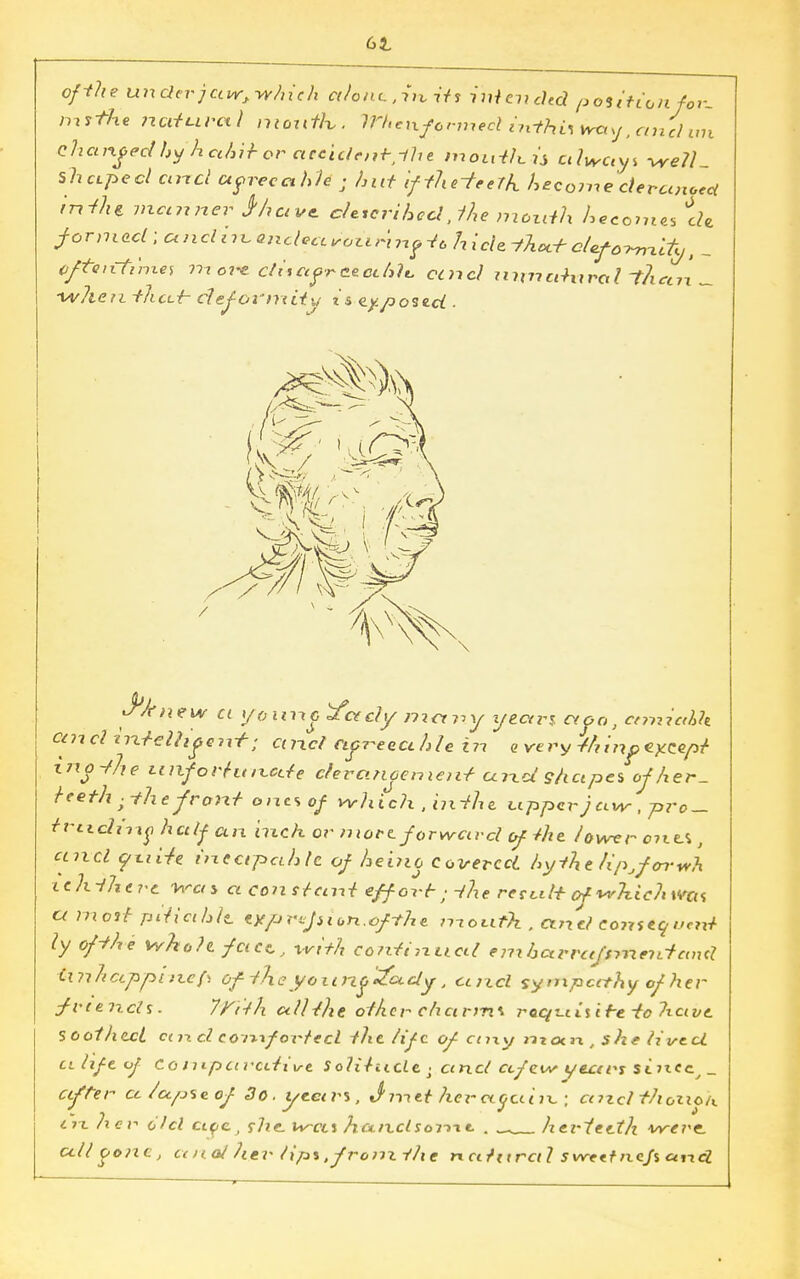 62
of the under jaw, which alone, in its intended position for-
ms the natural mouth. When formed in this way, and un
changed by habit or accident, the mouth is always well-
shaped and agreeable; but if the teeth become deranged
in the manner I have described, the mouth becomes de
formed; and in endeavouring to hide that deformity, _
oftentimes more disagreeable and unnatural than _
when that deformity is exposed.
I knew a young Lady many years ago, amiable
and intelligent; and agreeable in every thing except
ing the unfortunate derangement and shapes of her-
teeth; the front ones of which, in the upper jaw, pro—
truding half an inch or more forward of the lower ones,
and quite incapable of being covered by the lip, for wh
ich there was a constant effort; the result of which was
a most pitiable expreſsion of the mouth, and consequent
ly of the whole face, with continual embarraſsment and
unhappineſs of the young Lady, and sympathy of her
friends. With all the other charms requisite to have
soothed and comforted the life of any man, she lived
a life of comparative solitude; and a few years since, _
after a lapse of 30. years, I met her again; and though
in her old age, she was handsome. . — her teeth were
all gone, and her lips, from the natural sweetneſs and